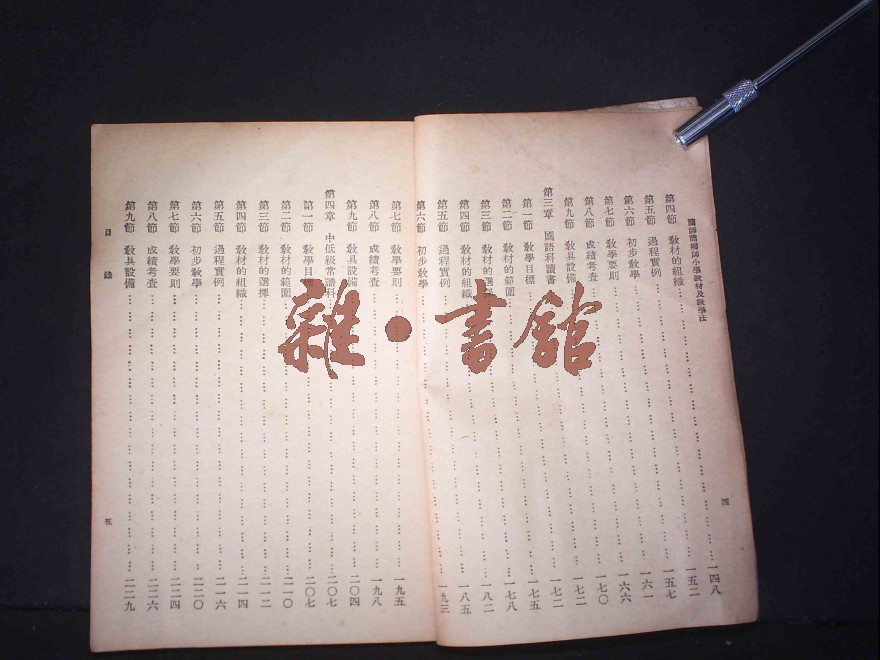 簡師簡鄉師小學教材及教學法
四
第四節 教材的組織 一四八
第五節 過程實例 一五二
第六節 初步教學 一五七
第七節 教學要則 一六一
第八節 成績考查 一六六
第九節 教具設備 一七〇
第三章 國語科讀書 一七二
第一節 教學目標 一七二
第二節 教材的範圍 一七五
第三節 教材的選擇 一七八
第四節 教材的組織 一八二
第五節 過程實例 一八五
第六節 初步教學 一九三
第七節 教學要則 一九五
第八節 成績考查 一九八
第九節 教具設備 二〇四
第四章 中低級常識科 二〇七
第一節 教學目標 二〇七
第二節 教材的範圍 二一〇
第三節 教材的選擇 二一二
第四節 教材的組織 二一四
第五節 過程實例 二一六
第六節 初步教學 二二〇
第七節 教學要則 二二四
第八節 成績考查 二二六
第九節 教具設備 二二九
目錄
五
雜·書館